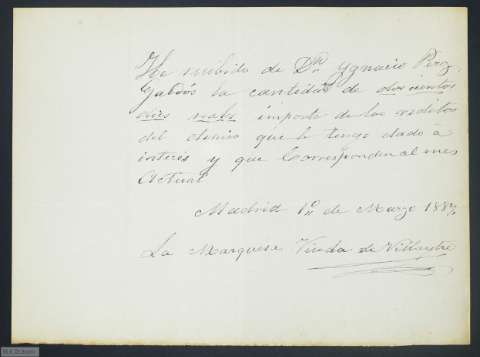 He recibido de Dn Ygnacio Perez
Galdós la cantidad de doscientos
diez reales importe de los reditos
del dinero que le tengo dado á
interés y que Corresponden al mes
Actual
Madrid 1º de Marzo 188
La Marquesa Viuda de Villaestre